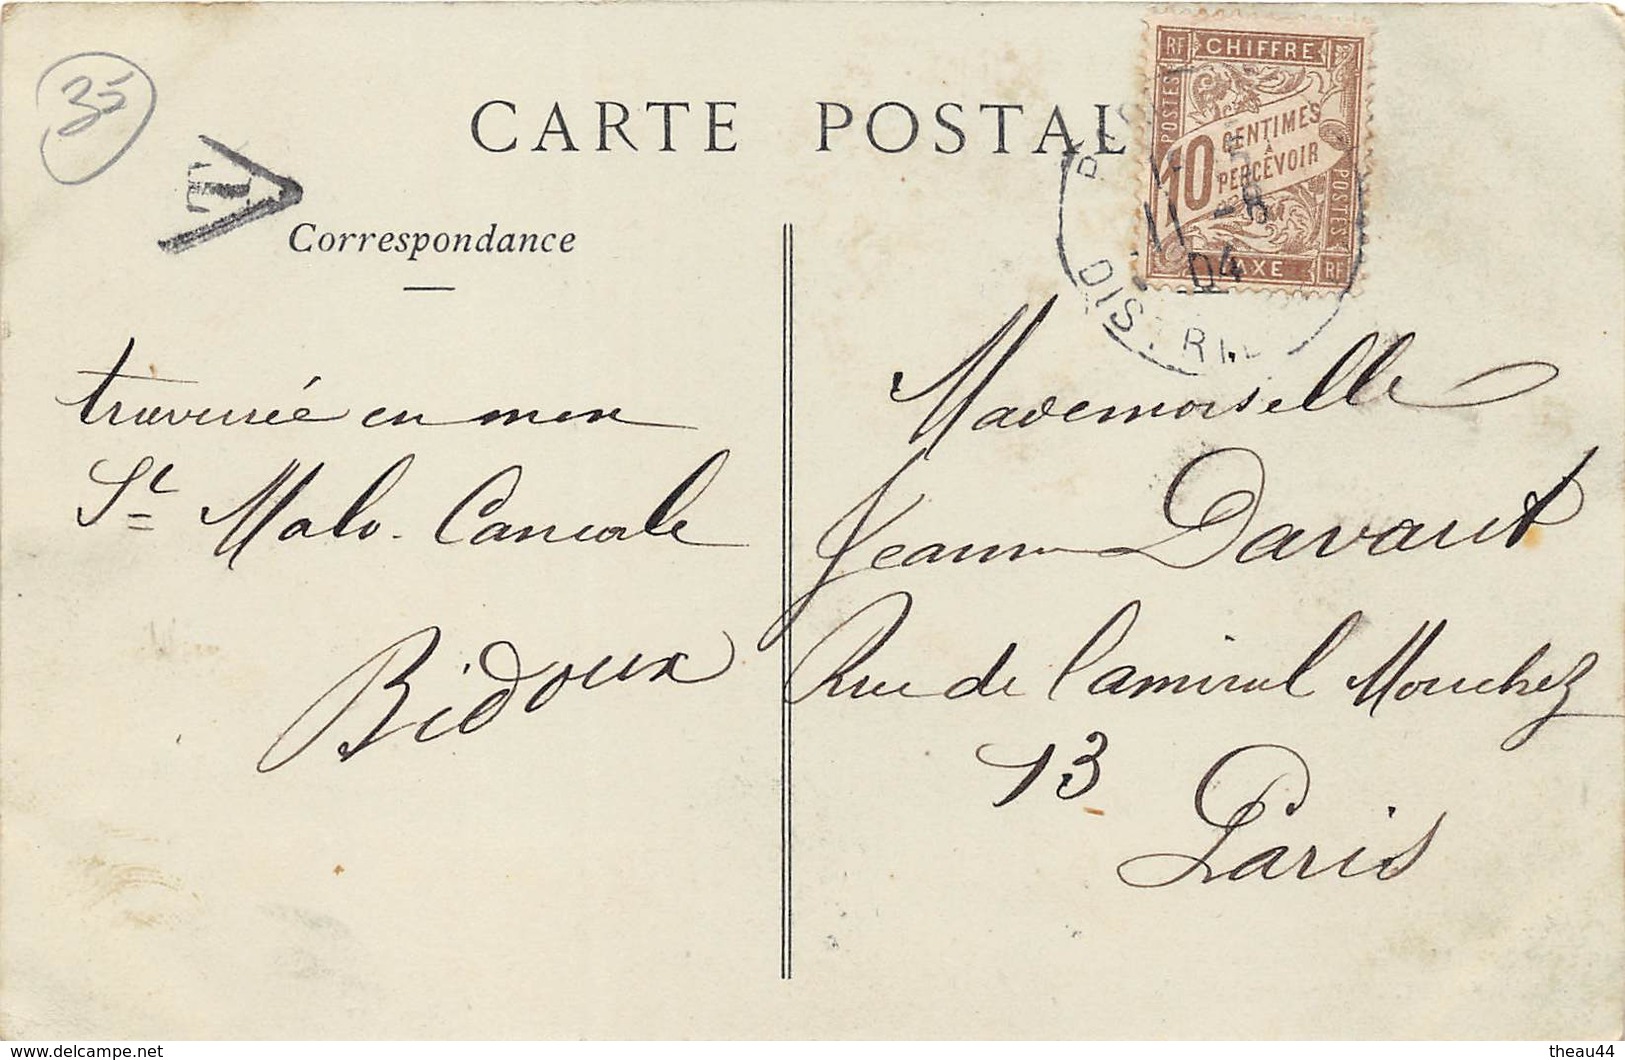 35
CARTE POSTAL
T
RF CHIFFRE
POSTES
10 CENTIMES
À
PERCEVOIR
POSTES
TAXE RF
11 -8
04
DISTRIB
Correspondance
traversée en mer
St Malo - Cancale
Bidoux
Mademoiselle
Jeanne Davaut
Rue de l'amiral Mouchez
13
Paris
theau44